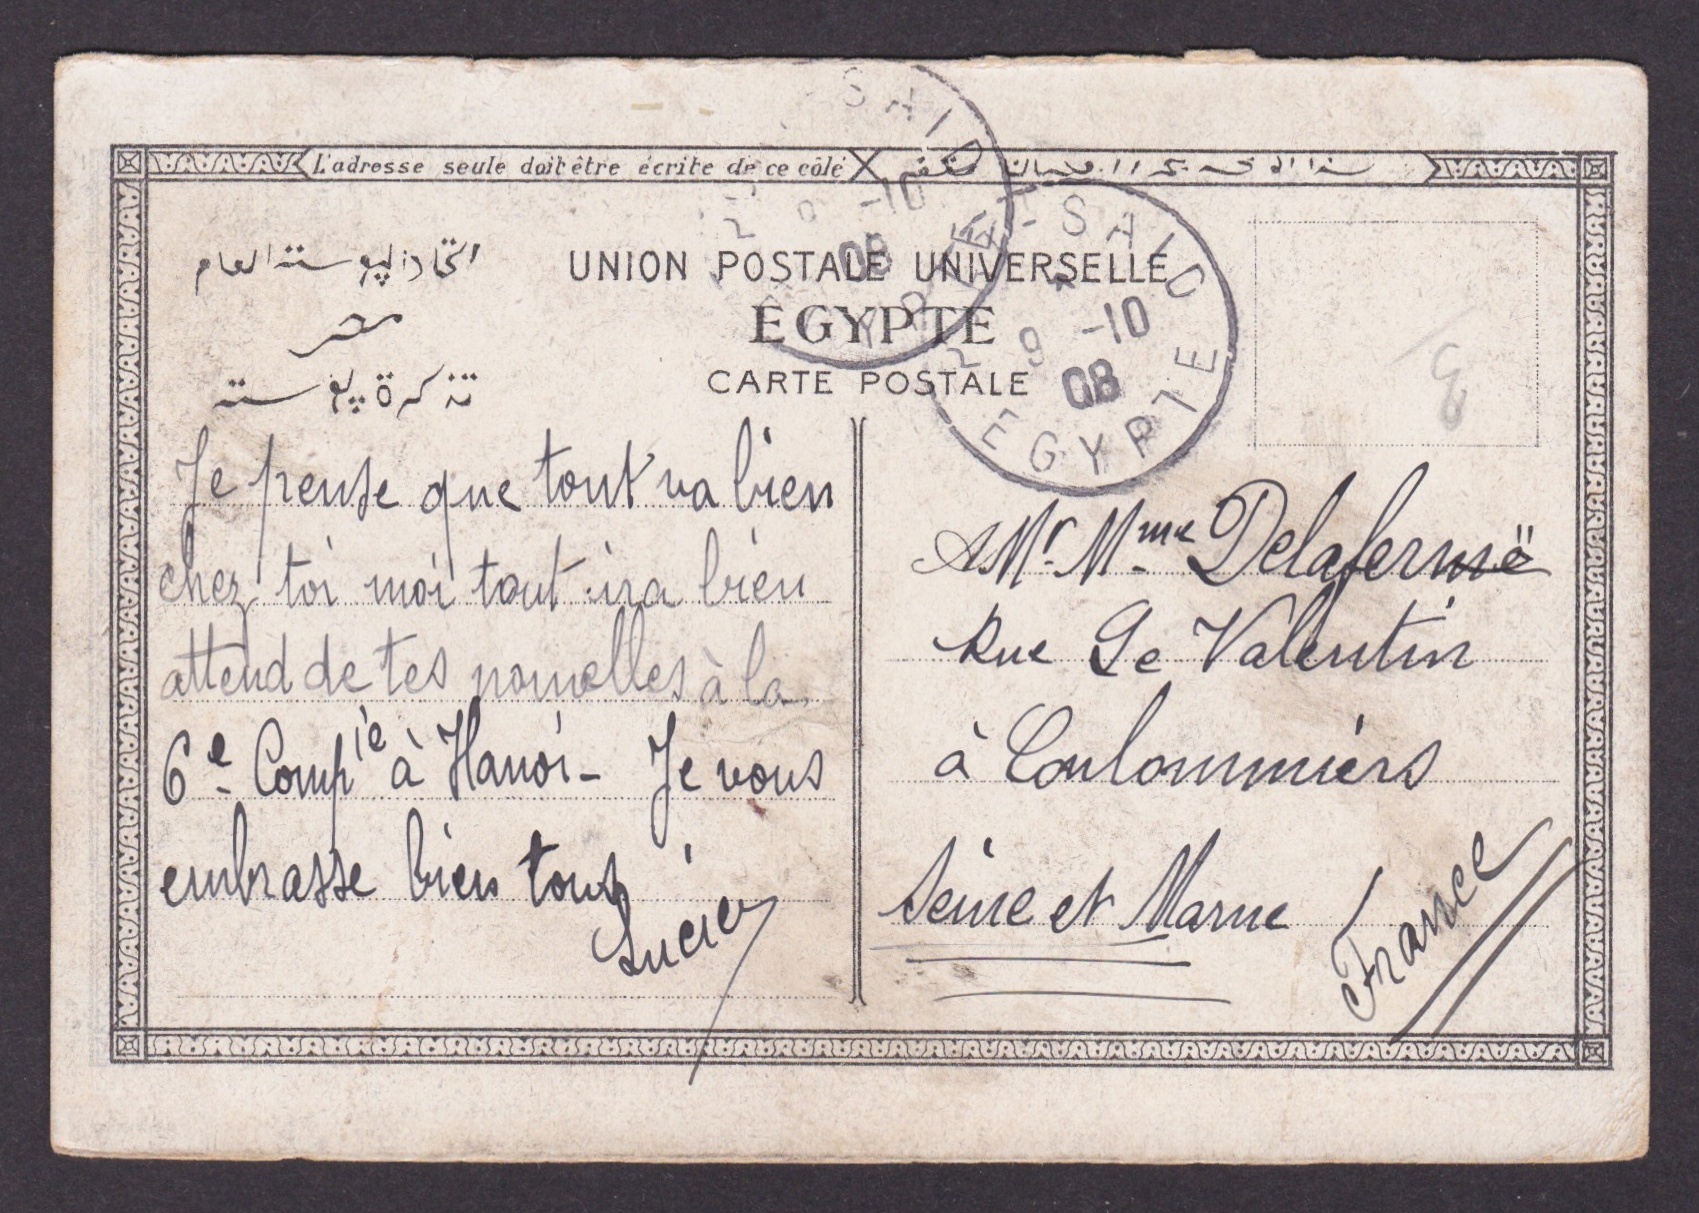 L'adresse seule doit être écrite de ce côté
اتحاد البوستة العام
مصر
تذكرة بوستة
UNION POSTALE UNIVERSELLE
EGYPTE
CARTE POSTALE
SAID
-10
08
T-SAID
29 -10
08
EGYPTE
Je pense que tout va bien
chez toi moi tout ira bien
attend de tes nouvelles à la
6e Compie à Hanoi - Je vous
embrasse bien tous
Lucien
A Mr. Mme Delaferme
Rue Le Valentin
à Coulommiers
Seine et Marne
France